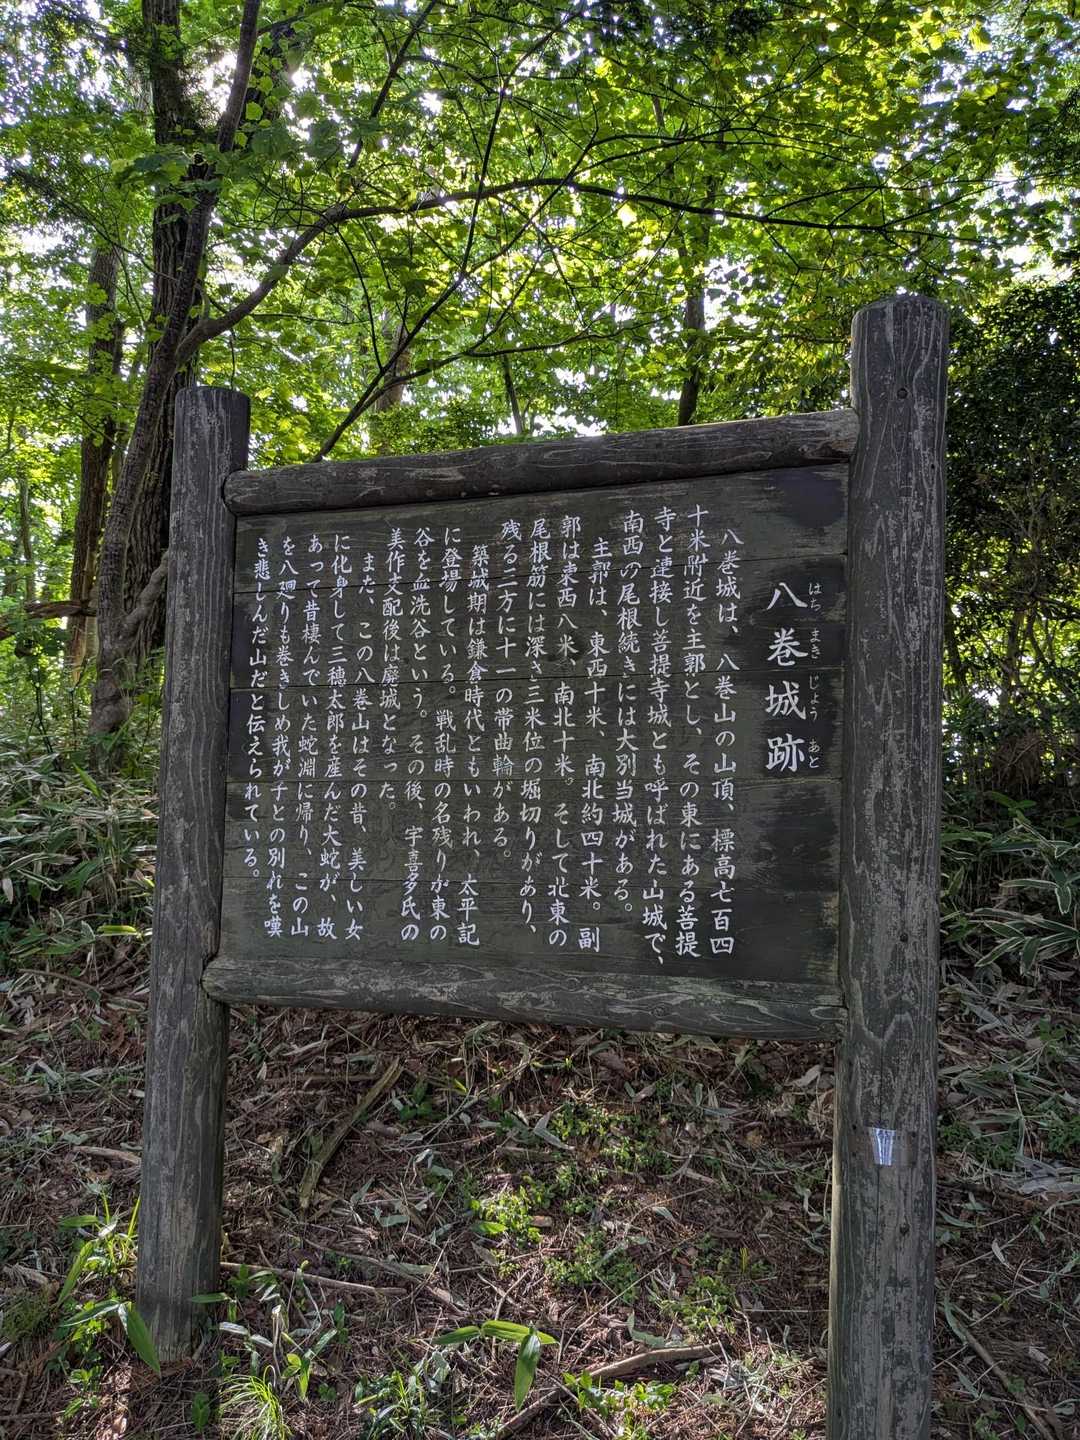 八巻城跡
はちまきじょうあと
八巻城は、八巻山の山頂、標高七百四
十米附近を主郭とし、その東にある菩提
寺と連接し菩提寺城とも呼ばれた山城で、
南西の尾根続きには大別当城がある。
主郭は、東西十米、南北約四十米。副
郭は東西八米、南北十米。そして北東の
尾根筋には深さ三米位の堀切りがあり、
残る三方に十一の帯曲輪がある。
築城期は鎌倉時代ともいわれ、太平記
に登場している。戦乱時の名残りが東の
谷を血洗谷という。その後、宇喜多氏の
美作支配後は廃城となった。
また、この八巻山はその昔、美しい女
に化身して三穂太郎を産んだ大蛇が、故
あって昔棲んでいた蛇淵に帰り、この山
を八廻りも巻きしめ我が子との別れを嘆
き悲しんだ山だと伝えられている。